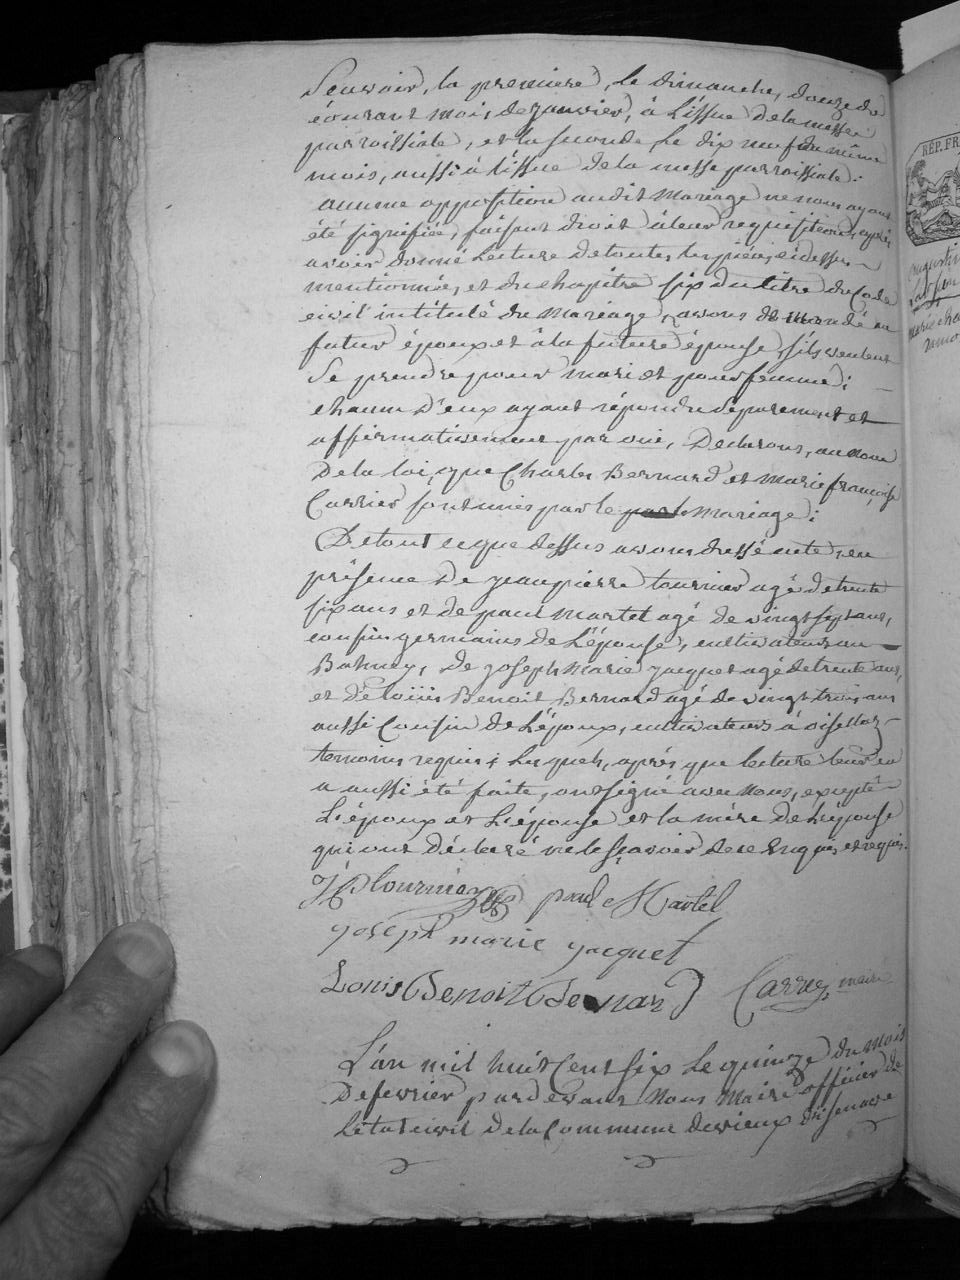 Scavoir, la premiere, le dimanche, douze de
courant mois, de janvier, à l'issue de la messe
parroissiale, et la seconde le dix neuf du même
mois, aussi à l'issue de la messe parroissiale.
aucune opposition audit mariage ne nous ayant
été signifiée, faisant droit à leur requisition, après
avoir donné lecture de toutes les pièces cidessus
mentionnées, et du chapitre six du titre du Code
civil intitulé du Mariage, avons demandé au
futur époux et à la future épouse, s'ils veulent
se prendre pour mari et pour femme;
chacun d'eux ayant répondu séparement et
affirmativement par oui, Declarons, au nom
De la loi, que Charles Bernard et Marie françoise
Carrier sont unis par le mariage;
De tout ce que dessus avons dressé acte, en
présence De jeanpierre tournier agé de trente
six ans et de paul Martel agé de vingt sept ans,
cousins germains de L'épouse, cultivateurs au
de joseph Marie jacquet agé de trente ans,
et de Louis Benoit Bernard agé de vingt trois ans
aussi Cousin de L'époux, cultivateurs à oisellaz
temoins requis; Lesquels, après que lecture leur en
a aussi été faite, ont signé avec nous, excepté
L'époux et L'épouse et la mère de L'épouse
qui ont déclaré ne le sçavoir de ce enquis et requis.
JP tournier paul Martel
joseph marie jacquet
Louis Benoit Bernard Carrier, maire
L'an mil huit Cent six le quinze du mois
De fevrier pardevant Nous Maire officier de
L'état civil de la Commune de vieux d'isenave
RÉP. FRA
augustin
marie